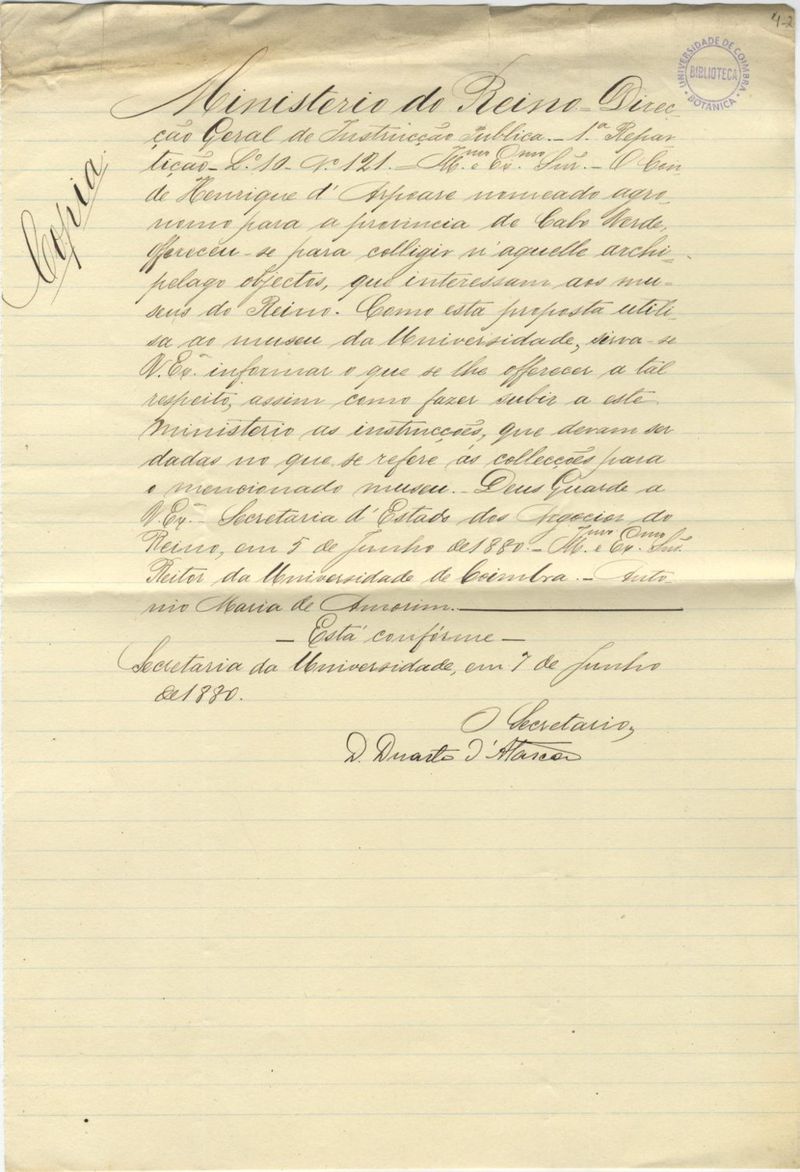 4-2
UNIVERSIDADE DE COIMBRA
BIBLIOTECA
BOTANICA
Copia
Ministerio do Reino = Direc-
ção Geral de Instrucção Publica. - 1.ª Repar
tição - L.º 10 - N.º 121. - Ill.mo e Ex.mo Snr. - O Con
de Henrique d'Arpoare nomeado agro-
nomo para a provincia de Cabo Verde,
offereceu-se para colligir n'aquelle archi-
pelago objectos, que interessam aos mu-
seus do Reino. Como esta proposta utili-
sa ao museu da Universidade, sirva-se
V. Ex.ª informar o que se lhe offerecer a tal
respeito, assim como fazer subir a este
Ministerio as instrucções, que devam ser
dadas no que se refere ás collecções para
o mencionado museu. - Deus Guarde a
V. Ex.ª - Secretaria d'Estado dos Negocios do
Reino, em 5 de Junho de 1880. - Ill.mo e Ex.mo Snr.
Reitor da Universidade de Coimbra. - Anto-
nio Maria de Amorim.
- Está confórme -
Secretaria da Universidade, em 7 de Junho
de 1880.
O Secretario,
D. Duarte d'Alarcão